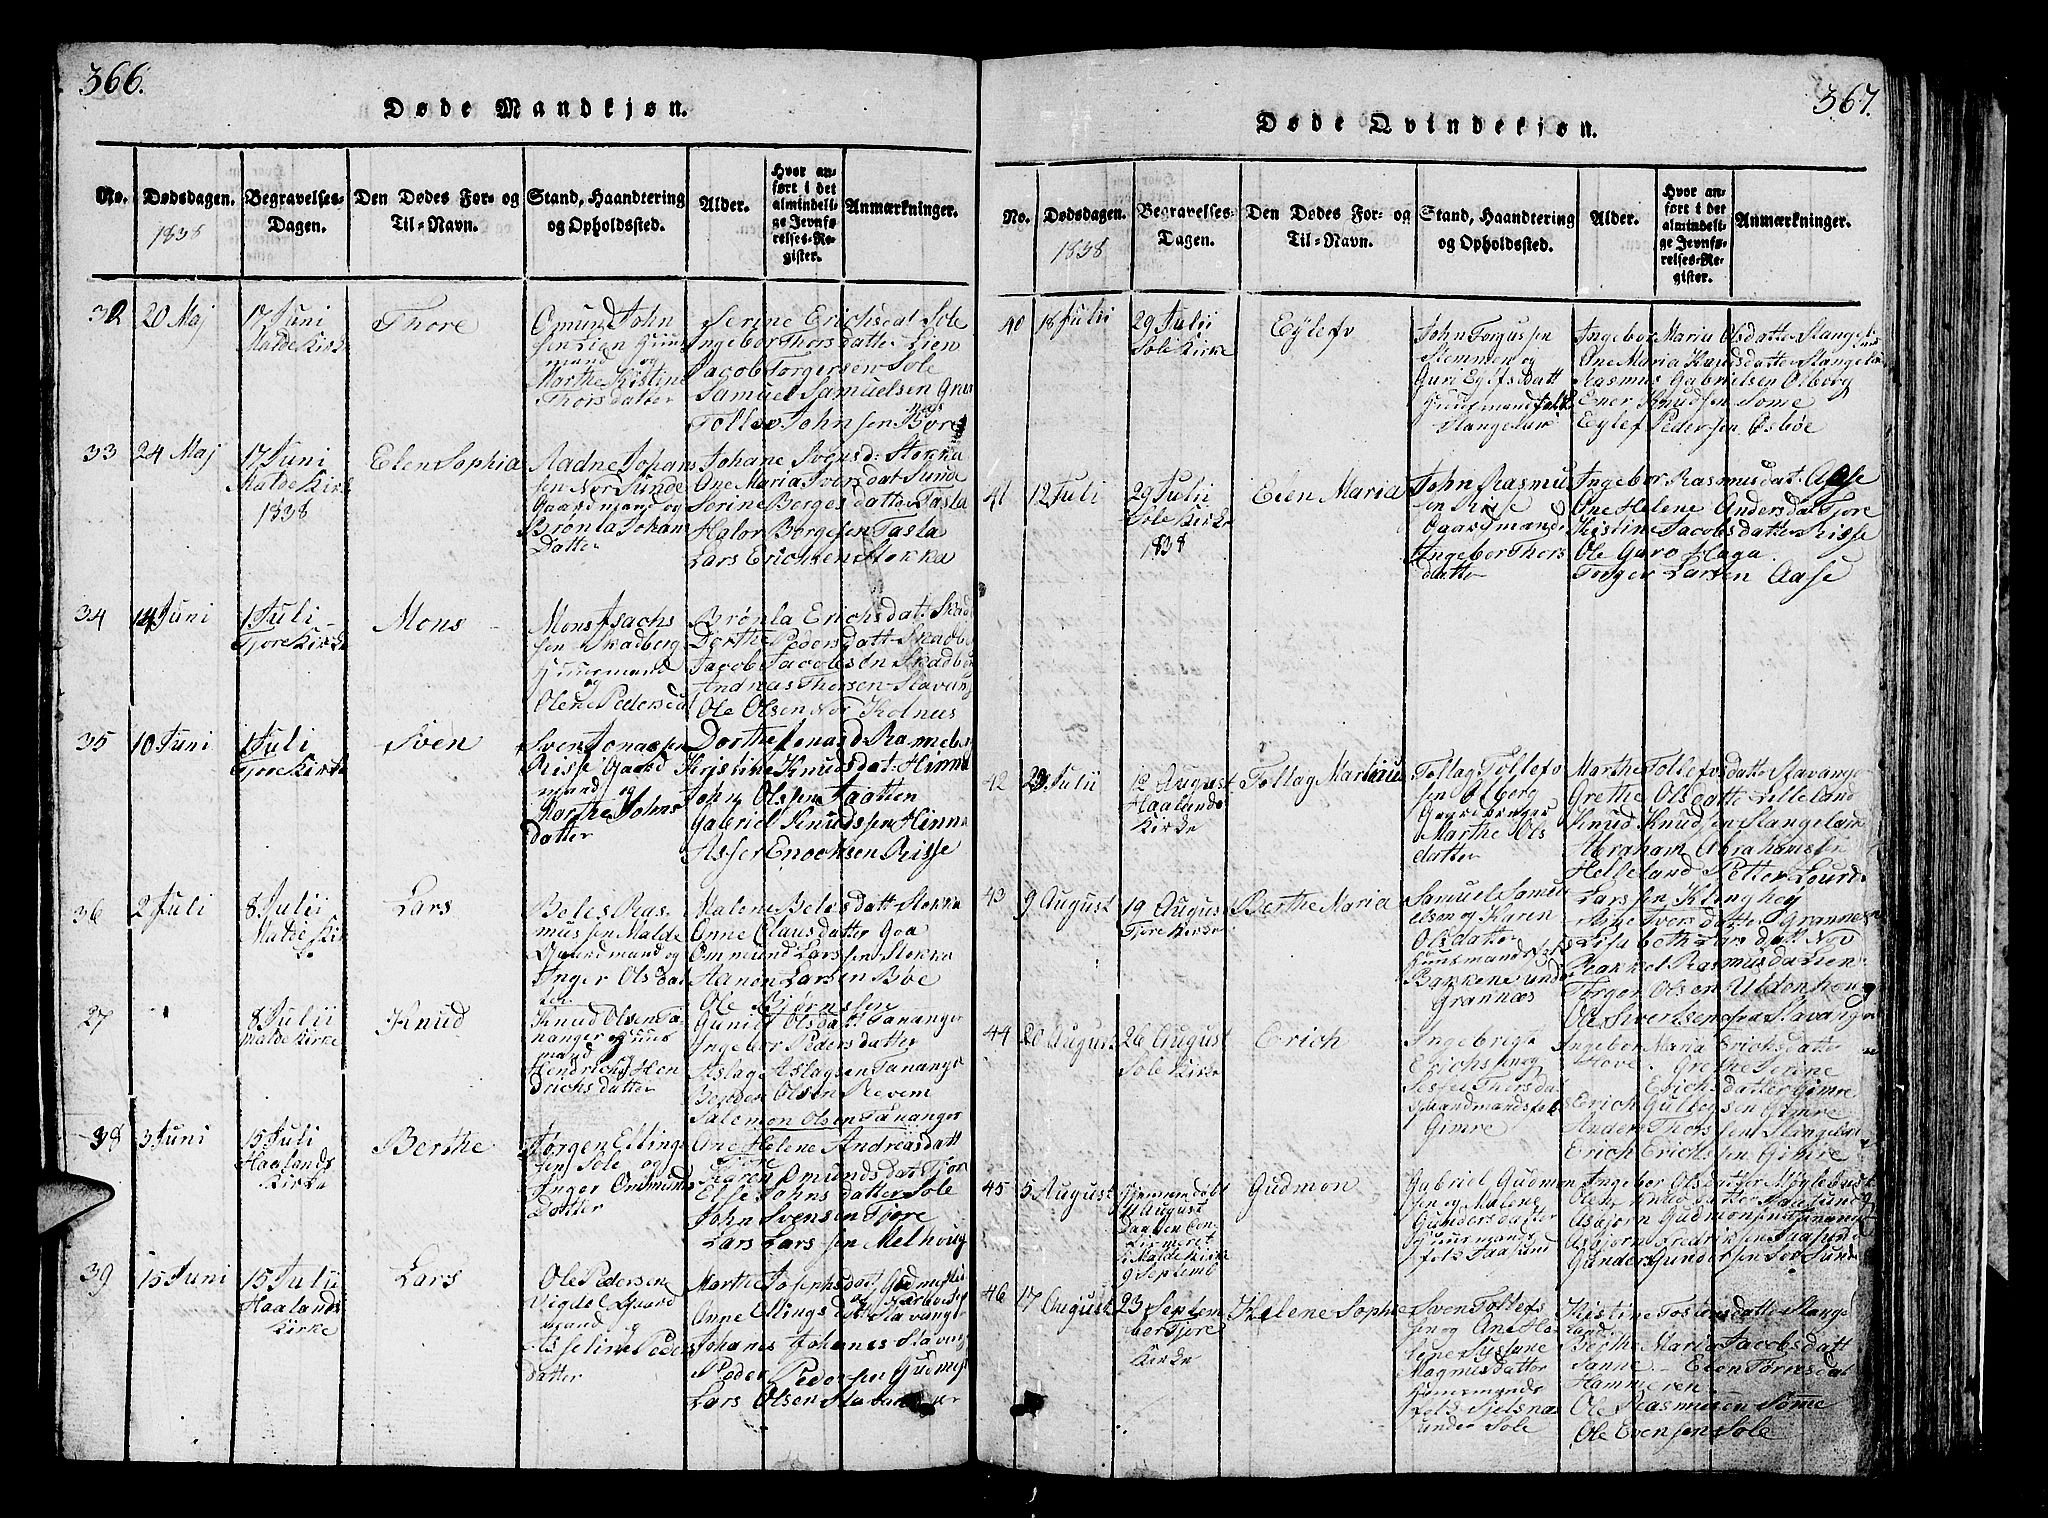 366.
Døde Mandkjøn.
No.
Dødsdagen.
1838
Begravelses-
Dagen.
Den Dødes For- og
Til-Navn.
Stand, Haandtering
og Opholdssted.
Alder.
Hvor an-
ført i det
almindeli-
ge Jevnfø-
relses-Re-
gister.
Anmærkninger.
32
20 Maj
17 Juni
Malde Kirk
Thore
Omund John
sen Lien Huus
mand og
Marthe Kistine
Thorsdatter
Serine Erichsdat Sole
Ingebor Thorsdatter Lien
Jacob Torgersen Sole
Samuel Samuelsen
Tollev Johnsen
33
24 Maj
17 Juni
Malde Kirk
1838
Elen Sophia
Aadne Johans
sen Nor Sunde
Gaardmand og
Brønla Johans
Datter
Johane Svensd: Stokka
One Maria Iversdat Sunde
Serine Borgesdatter Tasta
Halor Borgesen Tasta
Lars Erichsen Stokka
34
14 Juni
1 Juli
Tjore Kirke
Mons
Mons Isachs
sen Skadberg
Huusmand
og
Olene Pedersdat
Brønla Erichsdat: Skad
Dorthe Pedersdatt Skadb
Jacob Jacobsøn Skadb
Andreas Thorsen Stavang
Ole Olsen Nor Kolnus
35
10 Juni
1 Juli
Tjore Kirke
Sven
Sven Jonassen
Risse Gaard
mand og
Marthe Johns
datter
Dorthe Jonasd
Kristine Knudsdat: Hinna
John Olssen Taatten
Gabriel Knudssen Hinna
Asser Enochsen Risse
36
2 Juli
8 Julii
Malde Kir
Lars
Beles Ras
mussen Malde
Gaardmand og
Inger Olsdat
ter
Malene Belesdatt Stokka
Anne Clausdatter Goa
Ommund Larssen Stokka
Aanon Larsen Bøe
Ole Bjørnssen
27
8 Julii
Malde Kirke
Knud
Knud Olsen Ta
nanger Huus
mand og
Hendriche Hen
drichsdatter
Gunild Olsdatt Tananger
Ingebor Pedersdatter
Aslag Aslagsen Tananger
Olsen Revem
Salemon Olsen Tananger
38
3 Juni
15 Juli
Haalands
Kirke
Berthe
Torgen Ellings
sen Sole og
Inger Ommunds
Datter
One Helene Andreasdatt
Tjore
Karen Omundsdat Tjor
Else Johnsdatter Sole
John Svensen Tjore
Lars Larssen Melhoug
39
15 Juni
15 Julii
Haalands
Kirke
Lars
Ole Pedersen
Vigdel Gaard
mand og
Asseline Peders
datter
Marthe Josephsdat
Anne Ellingsdatt
Johanes Johanes Stavang
Peder Pederssen
Lars Olsen
367.
Døde Qvindekjøn.
No.
Dødsdagen.
1838
Begravelses-
Dagen.
Den Dødes For- og
Til-Navn.
Stand, Haandtering
og Opholdssted.
Alder.
Hvor an-
ført i det
almindeli-
ge Jevnfø-
relses-Re-
gister.
Anmærkninger.
40
18 Julii
29 Julii
Sole Kirke
Eylefv
John Torgussen
Stemmen og
Guri Eylefsdatt
Huusmandsfolk
Slangeland
Ingebor Maria Olsdatter Slangel
One Maria Knudsdatter Slangel
Rasmus Gabrielsen Olborg
Ener Knudssen Some
Eylef Pedersen Osbøe
41
12 Juli
29 Julii
Sole Kirke
1838
Elen Maria
John Rasmu
sen Risse
Gaardmande
Ingebor Thors
datter
Ingebor Rasmusdat Aase
One Helene Andersdat Tjore
Kistine Jacobsdatter Risse
Ole Garo Haga
Torger Larsen Aase
42
23 Julii
12 August
Haalands
Kirke
Tollag Martinus
Tollag Tollefv
sen Olberg
Gaardbruger
Marthe Ols
datter
Marthe Tollefvsdatter Stavange
Grethe Olsdatter Lilleland
Knud Knudsen Slangeland
Abraham Abrahamsen
Helleland
43
9 August
19 August
Tjore Kirke
Berthe Maria
Samuel Samu
elsen og Karen
Olsdatter
Huusmandsfolk
Bakkene under
Grannæs
Larssen
Iversdatter Grannes
Lisabeth Larsdatt
Rakkel Rasmusdat Lien
Torger Olsen
Ole Sivertsen Stavanger
44
20 August
26 August
Sole Kirke
Erich
Ingebregt
Erichsen og
Sissel Thorsdat
Gaardmandsfolk
Gimre
Ingebor Maria Ericksdatter
Hove. Grethe Serine
Erichsdatter Gimre
Erich Gullegsen Gimre
Ander Thorssen Slangelan
Erich Erichsen Gimre
45
5 August
Hjemmedøbt
11 August
Daaben Con
firmeret
i Malde Kirke
9 Septemb
Gudmon
Gabriel Gudmon
sen og Malene
Gundersdatter
Huusmands
folk Jaasund
Ingebor Olsdatter
Knudsdatter Jaasund
Asbjorn Gudmonsen Tanang
Asbjorn Fredriksen Jaasund
Gunder Gundersen
46
17 August
23 Septem
ber Tjore
Kirke
Helene Sophie
Sven Tollefs
sen og Ane He
lene Sysjane
Magnusdatter
Huusmands
folk
under Sole
Kistine Tostensdatter Slange
land
Berthe Maria Jacobsdatt
Sanne. Elen Torresdat
Hammeren.
Ole Rasmusen Sømme
Ole Evensen Sole